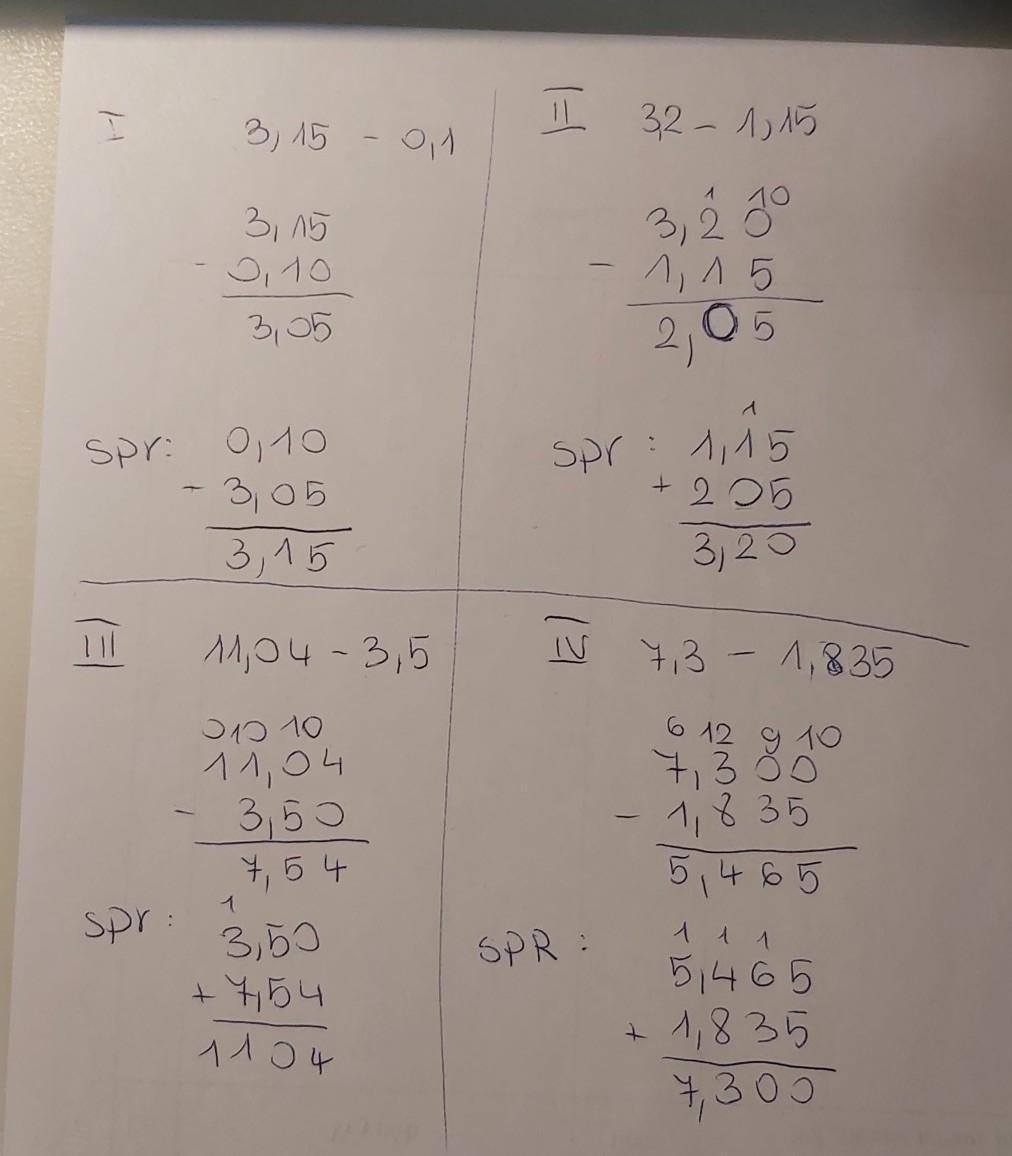 I 3,15 - 0,1
3,15
- 0,10
3,05
spr: 0,10
- 3,05
3,15
II 3,2 - 1,15
1 10
3,20
- 1,15
2,05
1
spr : 1,15
+ 205
3,20
III 11,04 - 3,5
010 10
11,04
- 3,50
7,54
1
spr: 3,50
+ 7,54
1104
IV 7,3 - 1,835
6 12 9 10
7,300
- 1,835
5,465
1 1 1
SPR : 5,465
+ 1,835
7,300